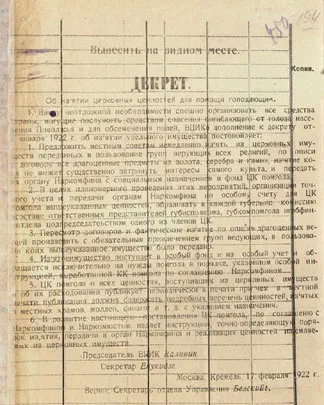 Вывесить на видном месте.
Копия.
ДЕКРЕТ.
Об изъятии церковных ценностей для помощи голодающим.
1. Ввиду неотложной необходимости спешно организовать все средства
страны, могущие послужить средством спасения погибающего от голода насе-
ления Поволжья и для обсеменения полей, ВЦИК в дополнение к декрету от
января 1922 г. об изъятии музейного имущества постановляет:
1. Предложить местным советам немедленно изъять из церковных иму-
ществ переданных в пользование групп верующих всех религий, по описи
и договору все драгоценные предметы из золота, серебра и камней, изъятие ко-
их не может существенно затронуть интересы самого культа, и передать
в органы Наркомфина с специальным назначением в фонд ЦК помгола.
2. В целях планомерного проведения этих мероприятий, организации точ-
ного учета и передачи органам Наркомфина по особому счету для ЦК
помгола вышеуказанных ценностей, образовать в каждой губернии комиссию
в составе ответственных представителей губисполкома, губкомпомгола и губфин-
отдела под председательством одного из членов ЦК.
3. Пересмотр договоров и фактическое изъятие по описям драгоценных ве-
щей производить с обязательным привлечением групп верующих, в пользова-
ние коих вышеуказанное имущество было передано.
4. Изъятое имущество поступает в особый фонд и на особый учет и об-
ращается исключительно на нужды помгола в порядке, указанном особой ин-
струкцией, выработанной КК помгола по соглашению с Наркомфином
5. ЦК помгола о всех ценностях, поступивших из церковных имуществ
и об их расходовании публикует периодически в печати при чем в местной
печати публикация должна содержать подробный перечень ценностей, изъятых
из местных храмов, молелен, синагог и т. д. с указанием назначения.
6. В развитие настоящего постановления ЦК помгола, по соглашению с
Наркомфином и Наркомюстом издает инструкцию, точно определяющую поря-
док изъятия, передачи в орган Наркомфина и реализации ценностей изъема-
емых из церковных имуществ.
Председатель ВЦИК Калинин.
Секретарь Енукидзе.
Москва, Кремль, 17 февраля 1922 г.
Верно: Секретарь отдела Управления Бельский.